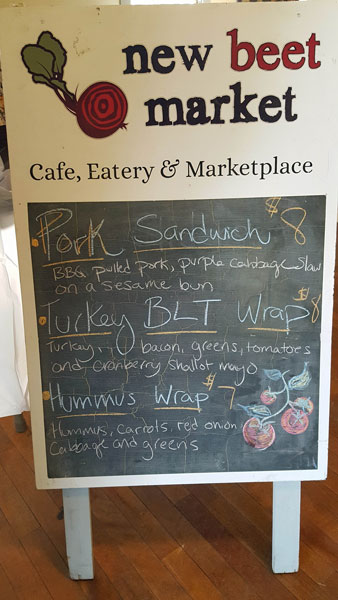 new beet
market
Cafe, Eatery & Marketplace
Pork Sandwich $8
BBQ pulled pork, purple cabbage slaw
on a sesame bun
Turkey BLT Wrap $8
Turkey, bacon, greens, tomatoes
and cranberry shallot mayo
Hummus Wrap $7
Hummus, carrots, red onion
Cabbage and greens